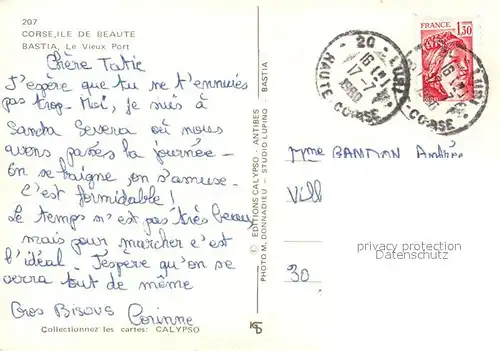 207
CORSE, ILE DE BEAUTE
BASTIA, Le Vieux Port
Chère Tatie
J'espère que tu ne t'ennuies
pas trop. Moi, je suis à
Santa Severa où nous
avons passés la journée –
on se baigne, on s'amuse.
C'est formidable !
Le temps n'est pas très beau,
mais pour marcher c'est
l'idéal. J'espère qu'on se
verra tout de même
Gros Bisous
Corinne
Collectionnez les cartes: CALYPSO
© EDITIONS CALYPSO - ANTIBES - BASTIA
PHOTO M. DONNADIEU - STUDIO LUPINO
FRANCE
1,30
20
16 H
17-7
1980
HAUTE-CORSE
HAUTE-CORSE
Mme BANDON Andrée
Vill
30
privacy protection
Datenschutz